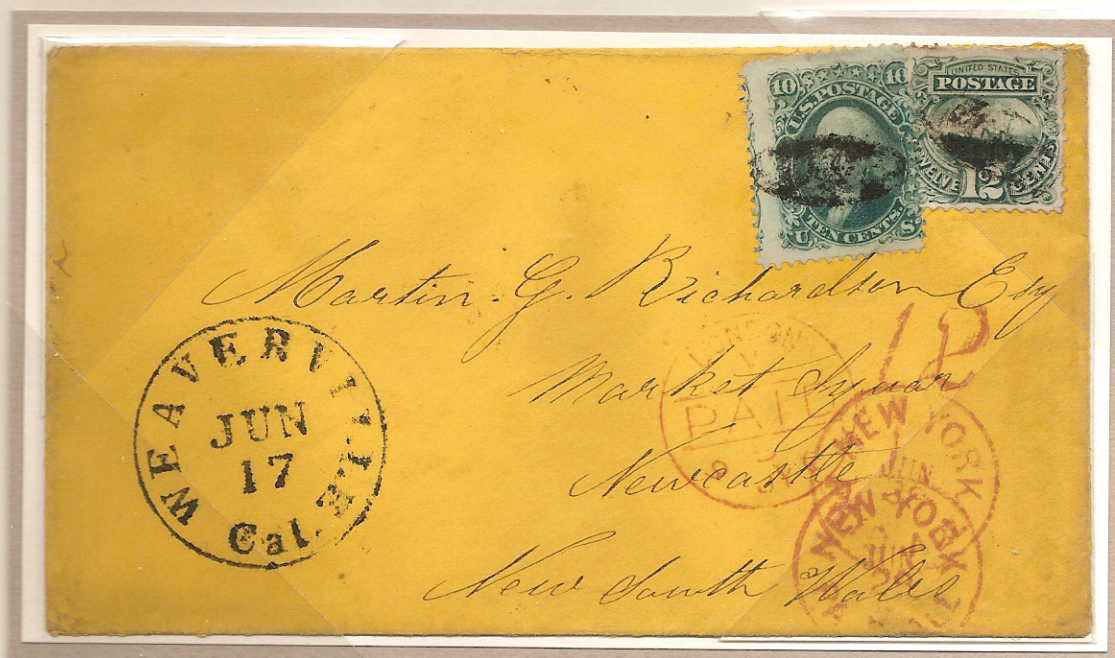 10 10
U.S. POSTAGE
TEN CENTS
U S.
UNITED STATES
POSTAGE
TWELVE 12 CENTS
Martin. G. Richardson Esq
Market Square
Newcastle
New South Wales
WEAVERVILLE
JUN
17
Cal.
LONDON
PAID
12
NEW YORK
JUN
NEW YORK
JUN